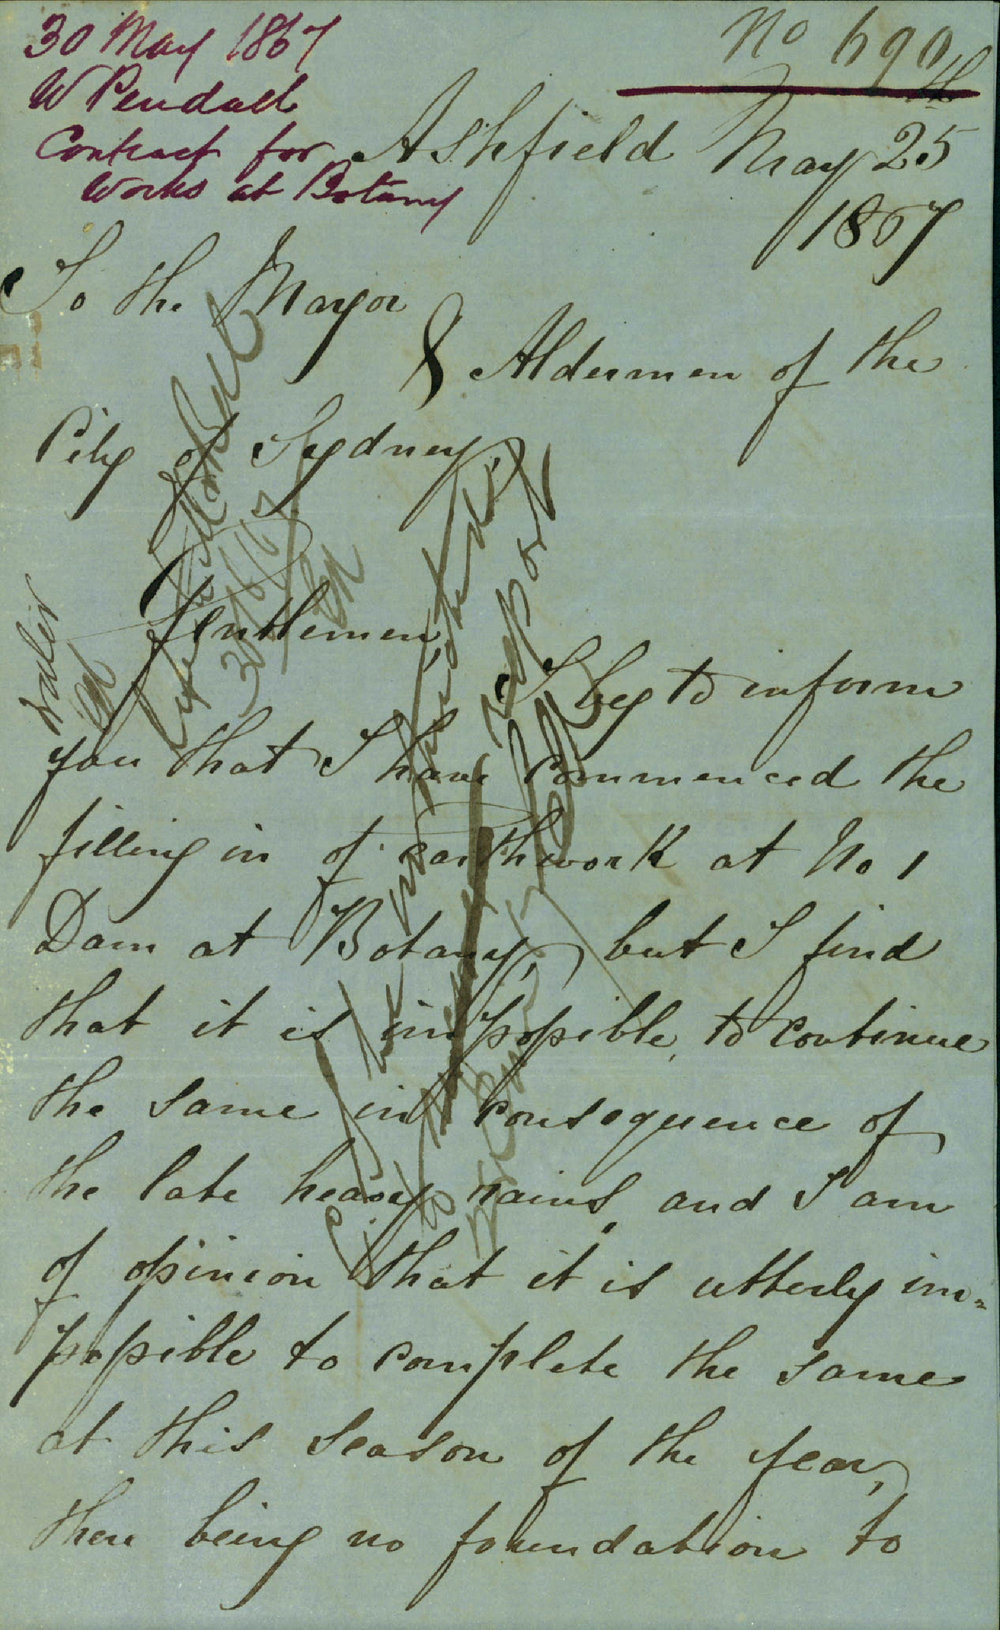 30 May 1867
W Pendall
Contract for
Works at Botany
No 690
Ashfield May 25th
1867
To the Mayor
& Aldermen of the
City of Sydney,
Gentlemen,
I beg to inform
you that I have commenced the
filling in of earthwork at No 1
Dam at Botany, but I find
that it is impossible, to continue
the same in consequence of
the late heavy rains, and I am
of opinion that it is utterly im=
possible to complete the same
at this season of the year,
there being no foundation to
Water
City